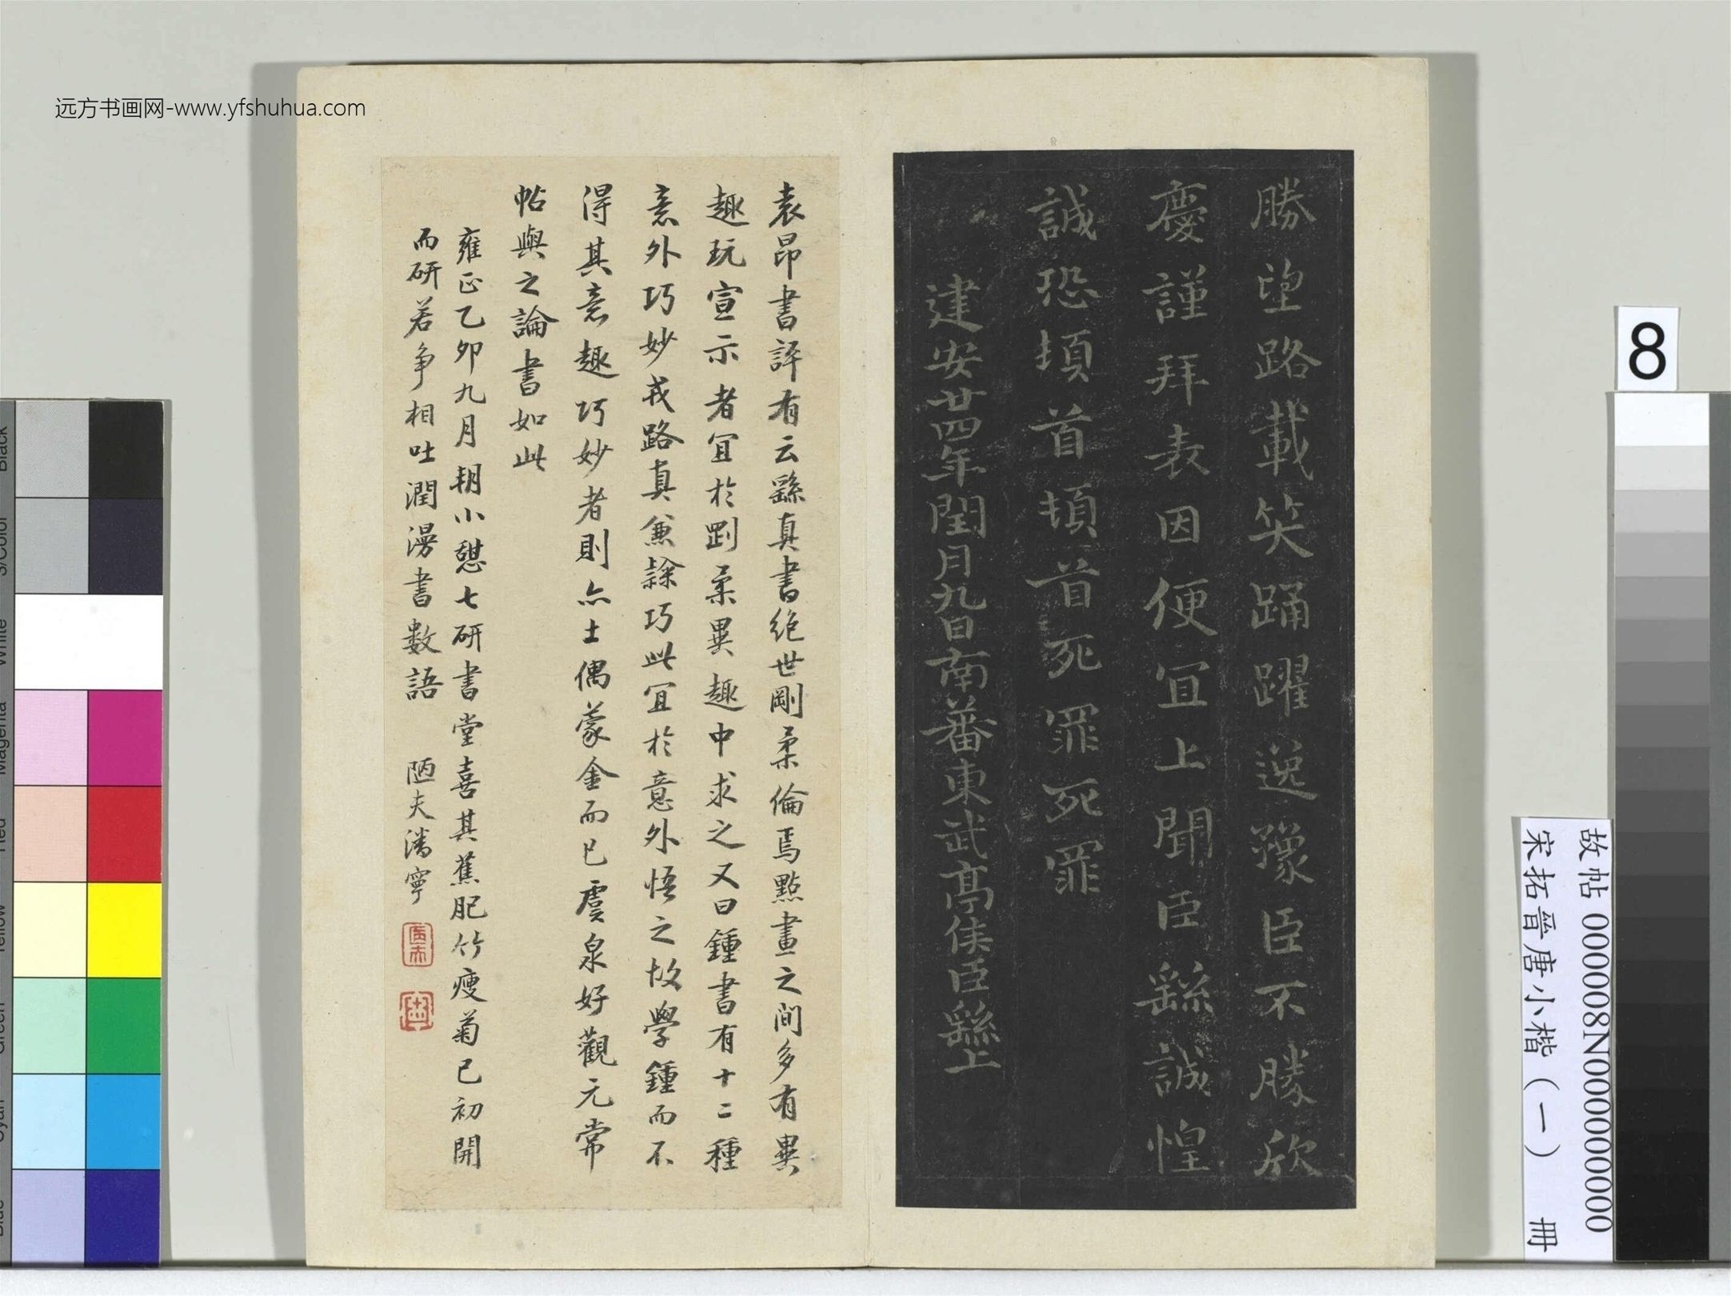 远方书画网-www.yfshuhua.com
勝望路載笑踊躍逸豫臣不勝欣
慶謹拜表因便宜上聞臣繇誠惶
誠恐頓首頓首死罪死罪
建安廿四年閏月九日南蕃東武亭侯臣繇上
袁昂書評有云繇真書絶世剛柔備焉點畫之间多有異
趣玩宣示者宜於剛柔異趣中求之又曰鍾書有十二種
意外巧妙戎路真兼隸巧此宜於意外悟之故學鍾而不
得其意趣巧妙者則亦士偶蒙金而已虞泉好觀元常
帖與之論書如此
雍正乙卯九月朔小憩七研書堂喜其蕉肥竹瘦菊已初開
而研若争相吐潤漫書數語 陋夫潘寧
8
故帖 000008N000000000
宋拓晉唐小楷(一) 冊
Black
3/Color
White
Magenta
Red
Yellow
Green
Cyan
Blue